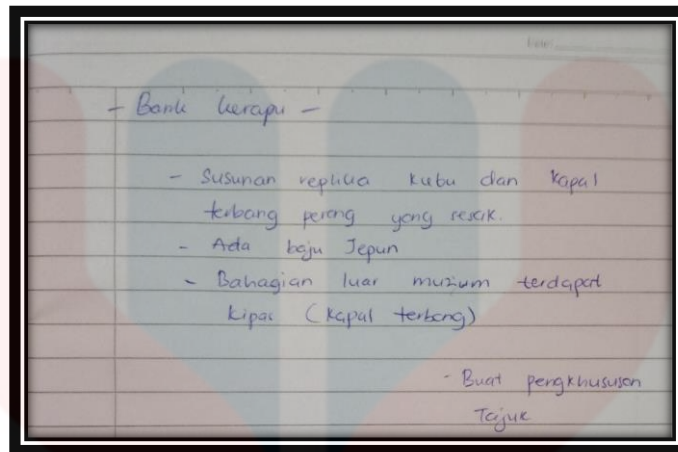 - Bank Kerapu -
- Susunan replika kubu dan kapal
terbang perang yang sesak.
- Ada baju Jepun
- Bahagian luar muzium terdapat
kipas (kapal terbang)
- Buat pengkhususan
Tajuk